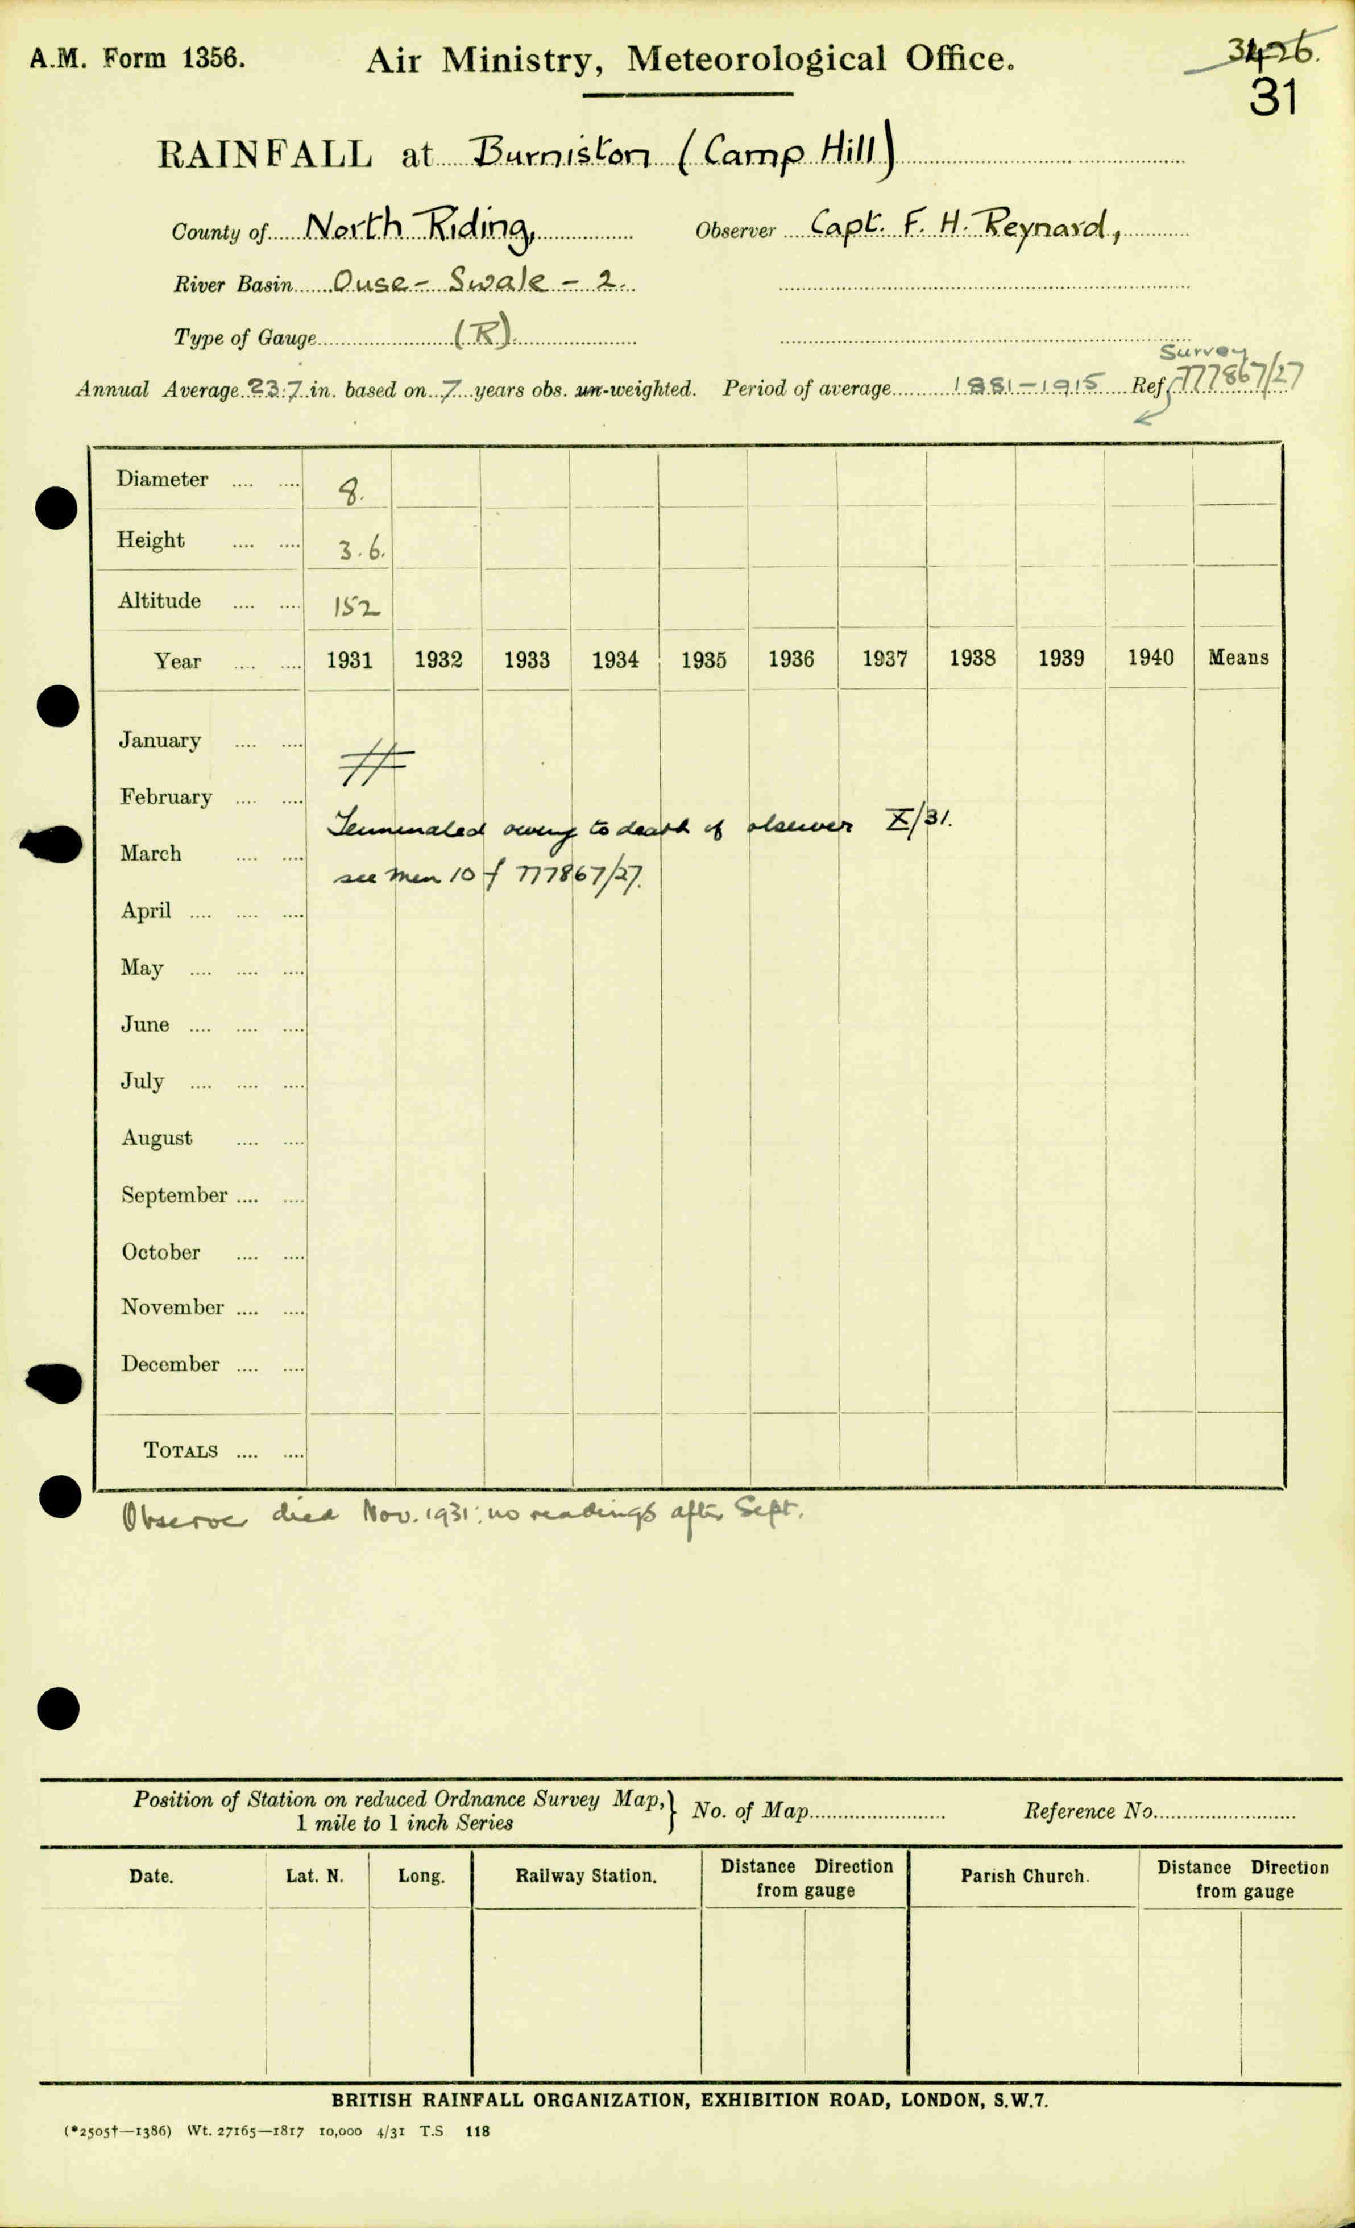 A.M. Form 1356.
Air Ministry, Meteorological Office.
3426.
31
RAINFALL at Burniston (Camp Hill)
County of North Riding,
Observer Capt. F. H. Reynard,
River Basin Ouse - Swale - 2.
Type of Gauge (R)
Survey
Annual Average 23.7 in. based on 7 years obs. un-weighted. Period of average 1881-1915 Ref 777867/27
Diameter 8.
Height 3.6.
Altitude 152
Year 1931 1932 1933 1934 1935 1936 1937 1938 1939 1940 Means
January
February
Terminated owing to death of observer X/31.
March
see Min 10 of 777867/27.
April
May
June
July
August
September
October
November
December
TOTALS
Observer died Nov. 1931; no readings after Sept.
Position of Station on reduced Ordnance Survey Map, } No. of Map Reference No.
1 mile to 1 inch Series
Date. Lat. N. Long. Railway Station. Distance Direction from gauge Parish Church. Distance Direction from gauge
BRITISH RAINFALL ORGANIZATION, EXHIBITION ROAD, LONDON, S.W.7.
(*2505†—1386) Wt. 27165—1817 10,000 4/31 T.S 118